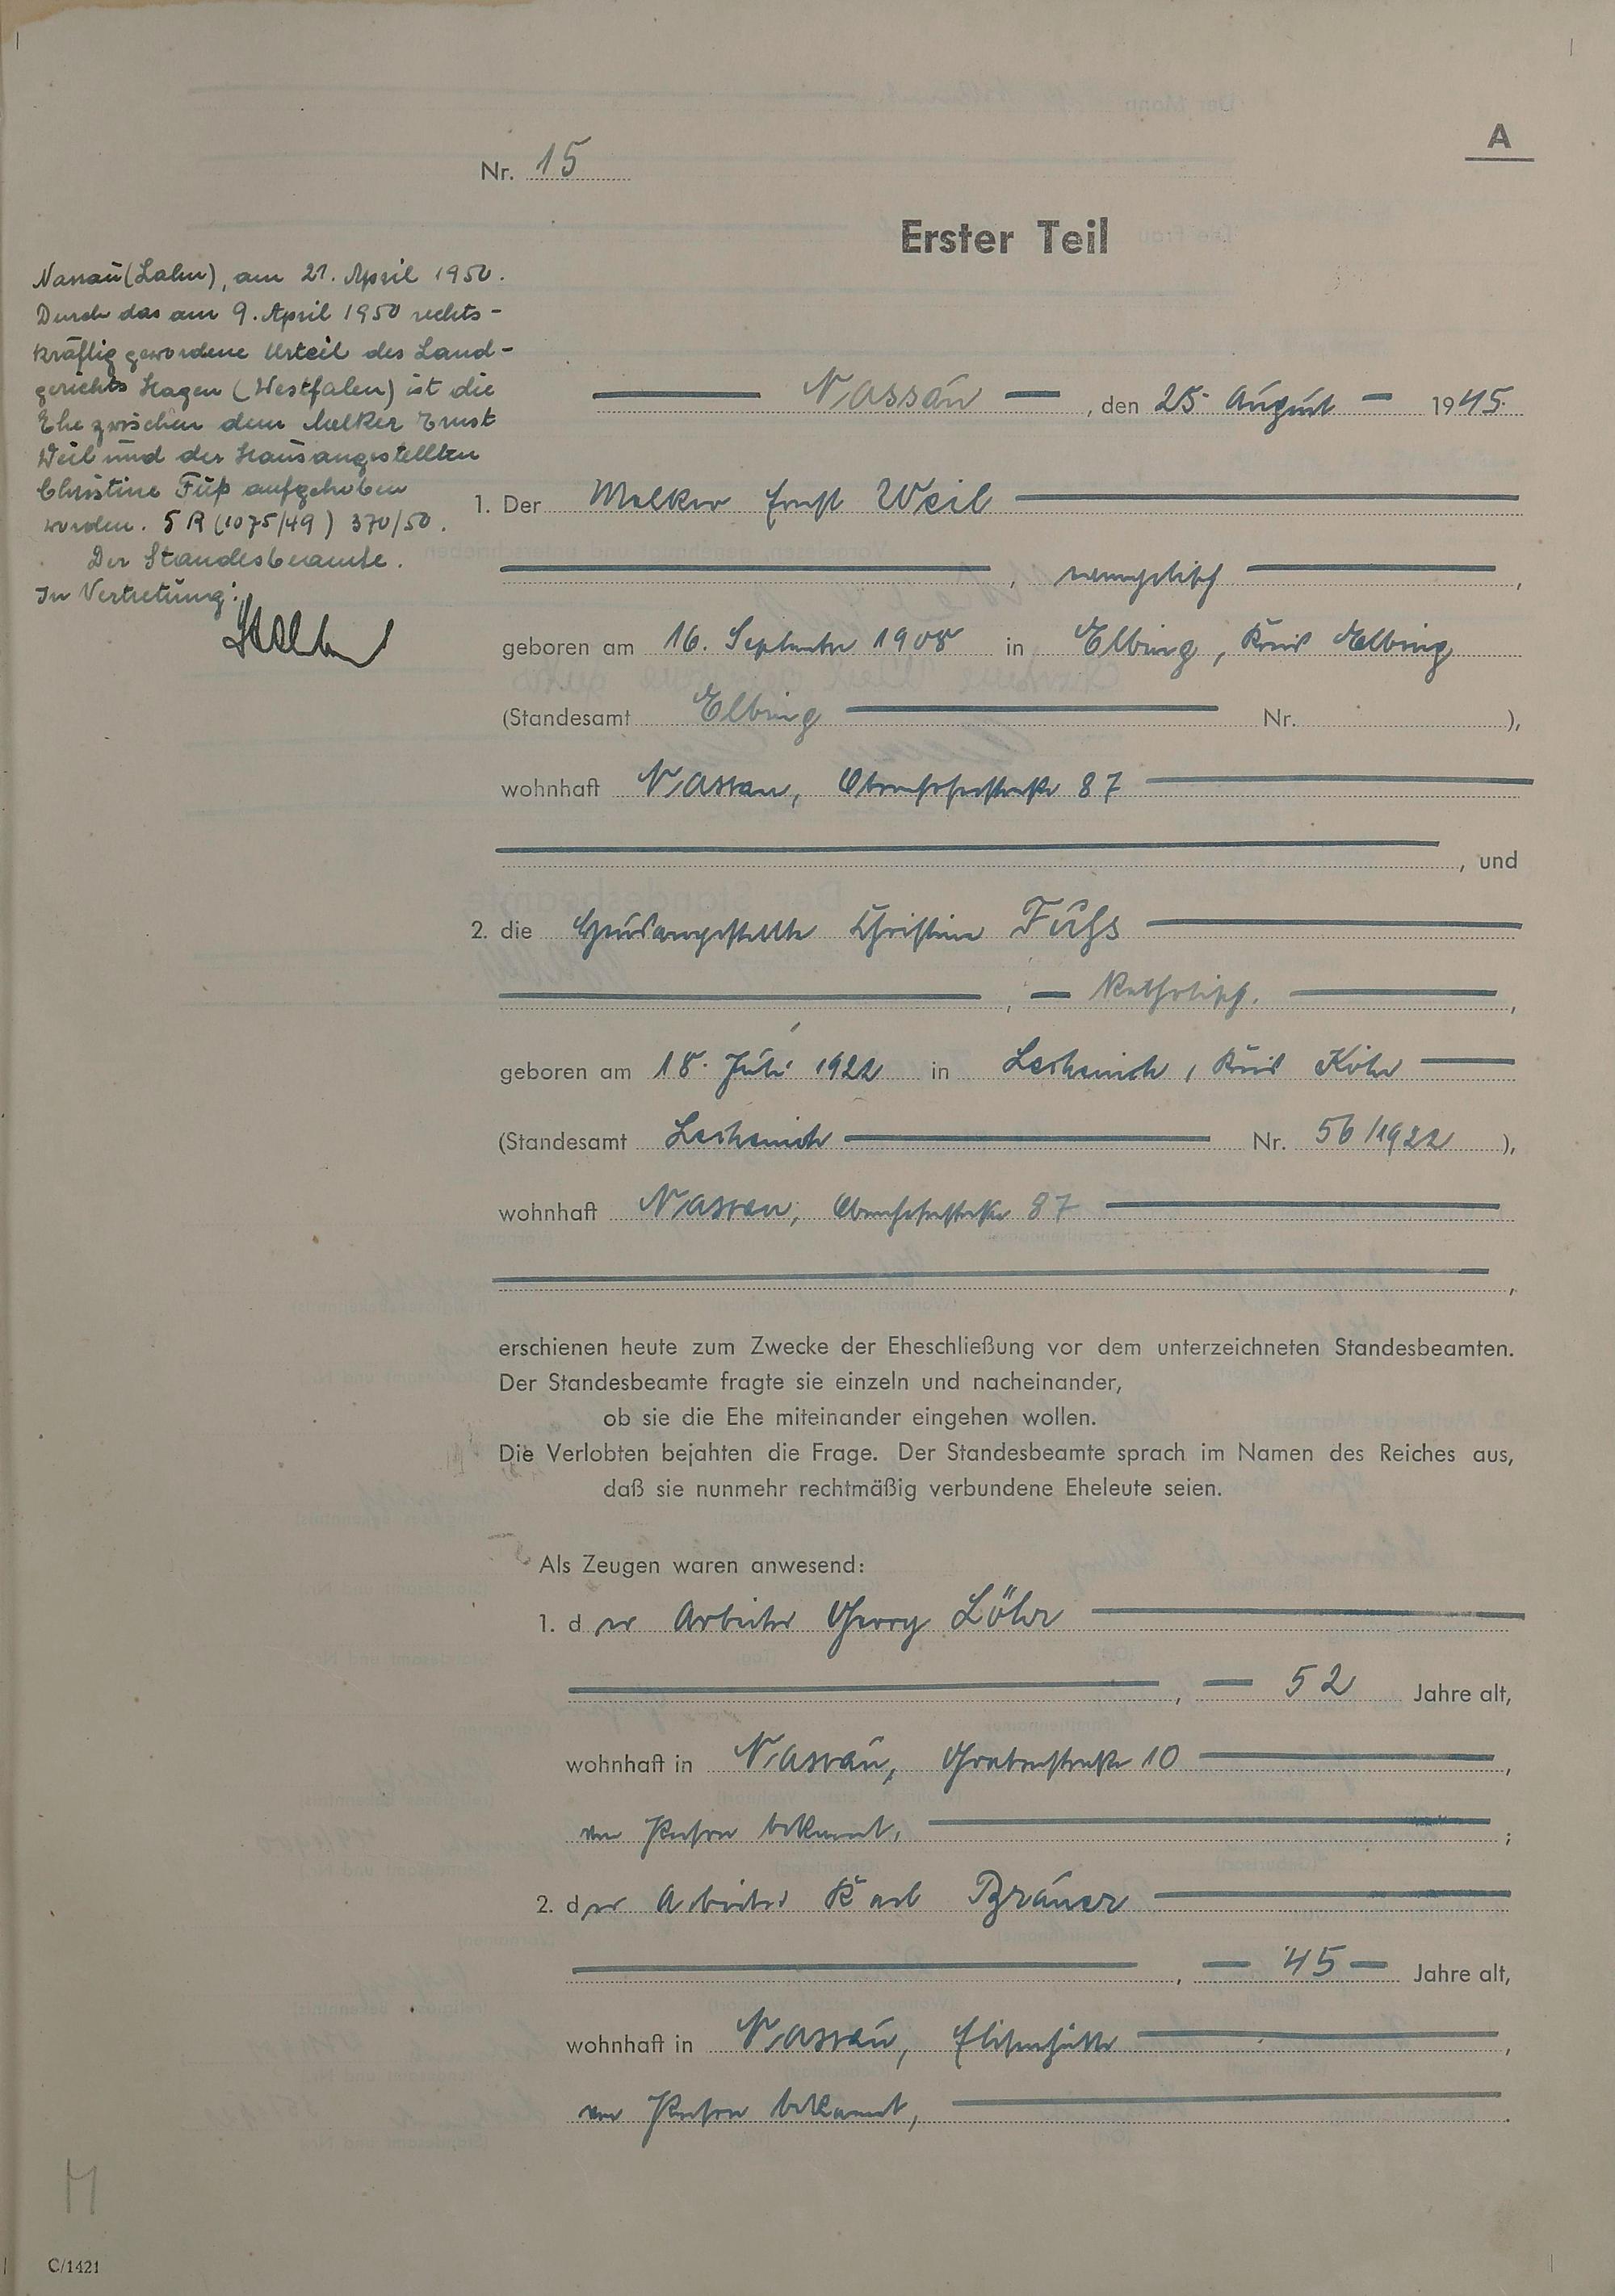 A
Nr. 15
Erster Teil
Nassau (Lahn), am 21. April 1950.
Durch das am 9. April 1950 rechts-
kräftig gewordene Urteil des Land-
gerichts Hagen (Westfalen) ist die
Ehe zwischen dem Melker Ernst
Weil und der Hausangestellten
Christine Fuß aufgehoben
worden. 5 R (1075/49) 370/50.
Der Standesbeamte.
In Vertretung:
Nassau, den 25. August 1945.
1. Der Melker Ernst Weil
, evangelisch,
geboren am 16. September 1908 in Elbing, Kreis Elbing
(Standesamt Elbing Nr. ),
wohnhaft Nassau, Obernhoferstraße 87
, und
2. die Hausangestellte Christine Fuhs
, katholisch.,
geboren am 18. Juli 1922 in Lechenich, Kreis Köln
(Standesamt Lechenich Nr. 56/1922),
wohnhaft Nassau, Obernhoferstraße 87
,
erschienen heute zum Zwecke der Eheschließung vor dem unterzeichneten Standesbeamten.
Der Standesbeamte fragte sie einzeln und nacheinander,
ob sie die Ehe miteinander eingehen wollen.
Die Verlobten bejahten die Frage. Der Standesbeamte sprach im Namen des Reiches aus,
daß sie nunmehr rechtmäßig verbundene Eheleute seien.
Als Zeugen waren anwesend:
1. der Arbeiter Georg Löhr
, 52 Jahre alt,
wohnhaft in Nassau, Grabenstraße 10,
von Person bekannt, ;
2. der Arbeiter Karl Bräuer
, 45 Jahre alt,
wohnhaft in Nassau, Elisenhütte,
von Person bekannt, .
M
C/1421